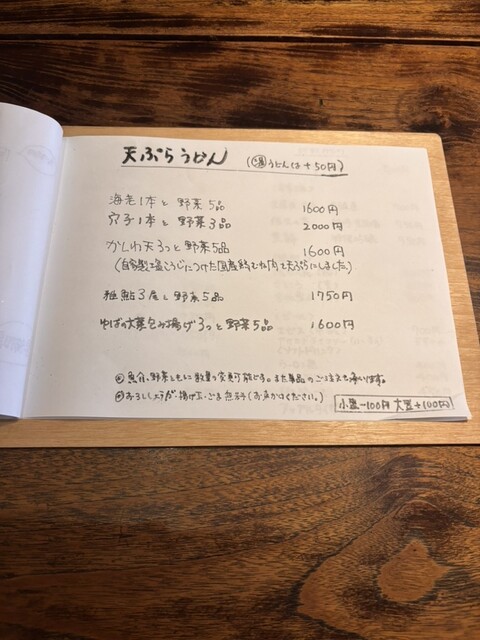 天ぷらうどん (温うどんは+50円)
海老1本と野菜5品 1600円
穴子1本と野菜3品 2000円
かしわ天3つと野菜5品 1600円
(自家製塩こうじにつけた国産鶏むね肉を天ぷらにしました)
稚鮎3尾と野菜5品 1750円
ゆばの大葉包み揚げ3つと野菜5品 1600円
魚介、野菜ともに数量の変更可能です。また単品のご注文も承ります。
おろし、天かす、揚げ玉、ごま無料(お声かけください。)
小盛-100円 大盛+100円